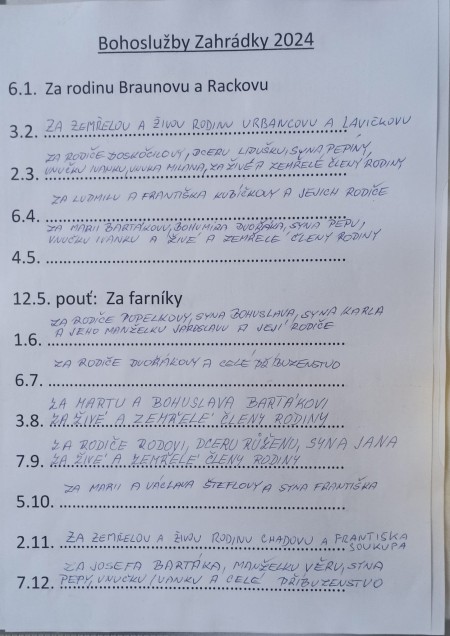 Bohoslužby Zahrádky 2024
6.1. Za rodinu Braunovu a Rackovu
3.2. ZA ZEMŘELOU A ŽIVOU RODINU URBANCOVU A LAVIČKOVU
ZA RODIČE DOSKOČILOVY, DCERU LIDUŠKU, SYNA PEPINY,
2.3. VNUČKU IVANKU, VNUKA MILANA, ZA ŽIVÉ A ZEMŘELÉ ČLENY RODINY
ZA LUDMILU A FRANTIŠKA KUBÍČKOVY A JEJICH RODIČE
6.4.
ZA MARII BARTÁKOVU, BOHUMIRA DVOŘÁKA, SYNA PEPU,
VNUČKU IVANKU A ŽIVÉ A ZEMŘELÉ ČLENY RODINY
4.5.
12.5. pouť: Za farníky
ZA RODIČE POPELKOVY, SYNA BOHUSLAVA, SYNA KARLA
A JEHO MANŽELKU JAROSLAVU A JEJÍ RODIČE
1.6.
ZA RODIČE DVOŘÁKOVY A CELÉ PŘÍBUZENSTVO
6.7.
ZA MARTU A BOHUSLAVA BARTÁKOVI
3.8. ZA ŽIVÉ A ZEMŘELÉ ČLENY RODINY
ZA RODIČE RODOVI, DCERU RŮŽENU, SYNA JANA
7.9. ZA ŽIVÉ A ZEMŘELÉ ČLENY RODINY
ZA MARII A VÁCLAVA ŠTEFLOVY A SYNA FRANTIŠKA
5.10.
2.11. ZA ZEMŘELOU A ŽIVOU RODINU CHADOVU A FRANTIŠKA
SOUKUPA
ZA JOSEFA BARTÁKA, MANŽELKU VĚRU, SYNA
7.12. PEPY, VNUČKU IVANKU A CELÉ PŘÍBUZENSTVO